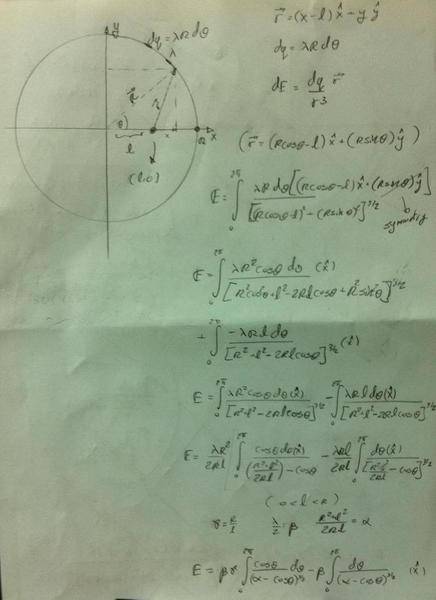 y
dq = λRdθ
λ
R
r
θ
l
x
R
x
(l,0)
r⃗ = (x-l) x̂ + y ŷ
dq = λR dθ
dE = dq/r³ r⃗
(r⃗ = (Rcosθ-l) x̂ + (Rsinθ) ŷ)
E = ∫₀^{2π} λR dθ [(Rcosθ-l) x̂ + (Rsinθ) ŷ] / [(Rcosθ-l)² + (Rsinθ)²]^{3/2}
symmetry
E = ∫₀^{2π} λR²cosθ dθ (x̂) / [R²cos²θ + l² - 2Rlcosθ + R²sin²θ]^{3/2}
+ ∫₀^{2π} -λRl dθ / [R² + l² - 2Rlcosθ]^{3/2} (x̂)
E = ∫₀^{2π} λR²cosθ dθ (x̂) / [R² + l² - 2Rlcosθ]^{3/2} - ∫₀^{2π} λRl dθ (x̂) / [R² + l² - 2Rlcosθ]^{3/2}
E = λR²/2Rl ∫₀^{2π} cosθ dθ (x̂) / (R²+l²/2Rl) - cosθ - λRl/2Rl ∫₀^{2π} dθ (x̂) / [R²+l²/2Rl - cosθ]^{3/2}
(0 < l < R)
γ = R/l λ/2 = β R²+l²/2Rl = α
E = βγ ∫₀^{2π} cosθ dθ / (α - cosθ)^{3/2} - β ∫₀^{2π} dθ / (α - cosθ)^{3/2} (x̂)